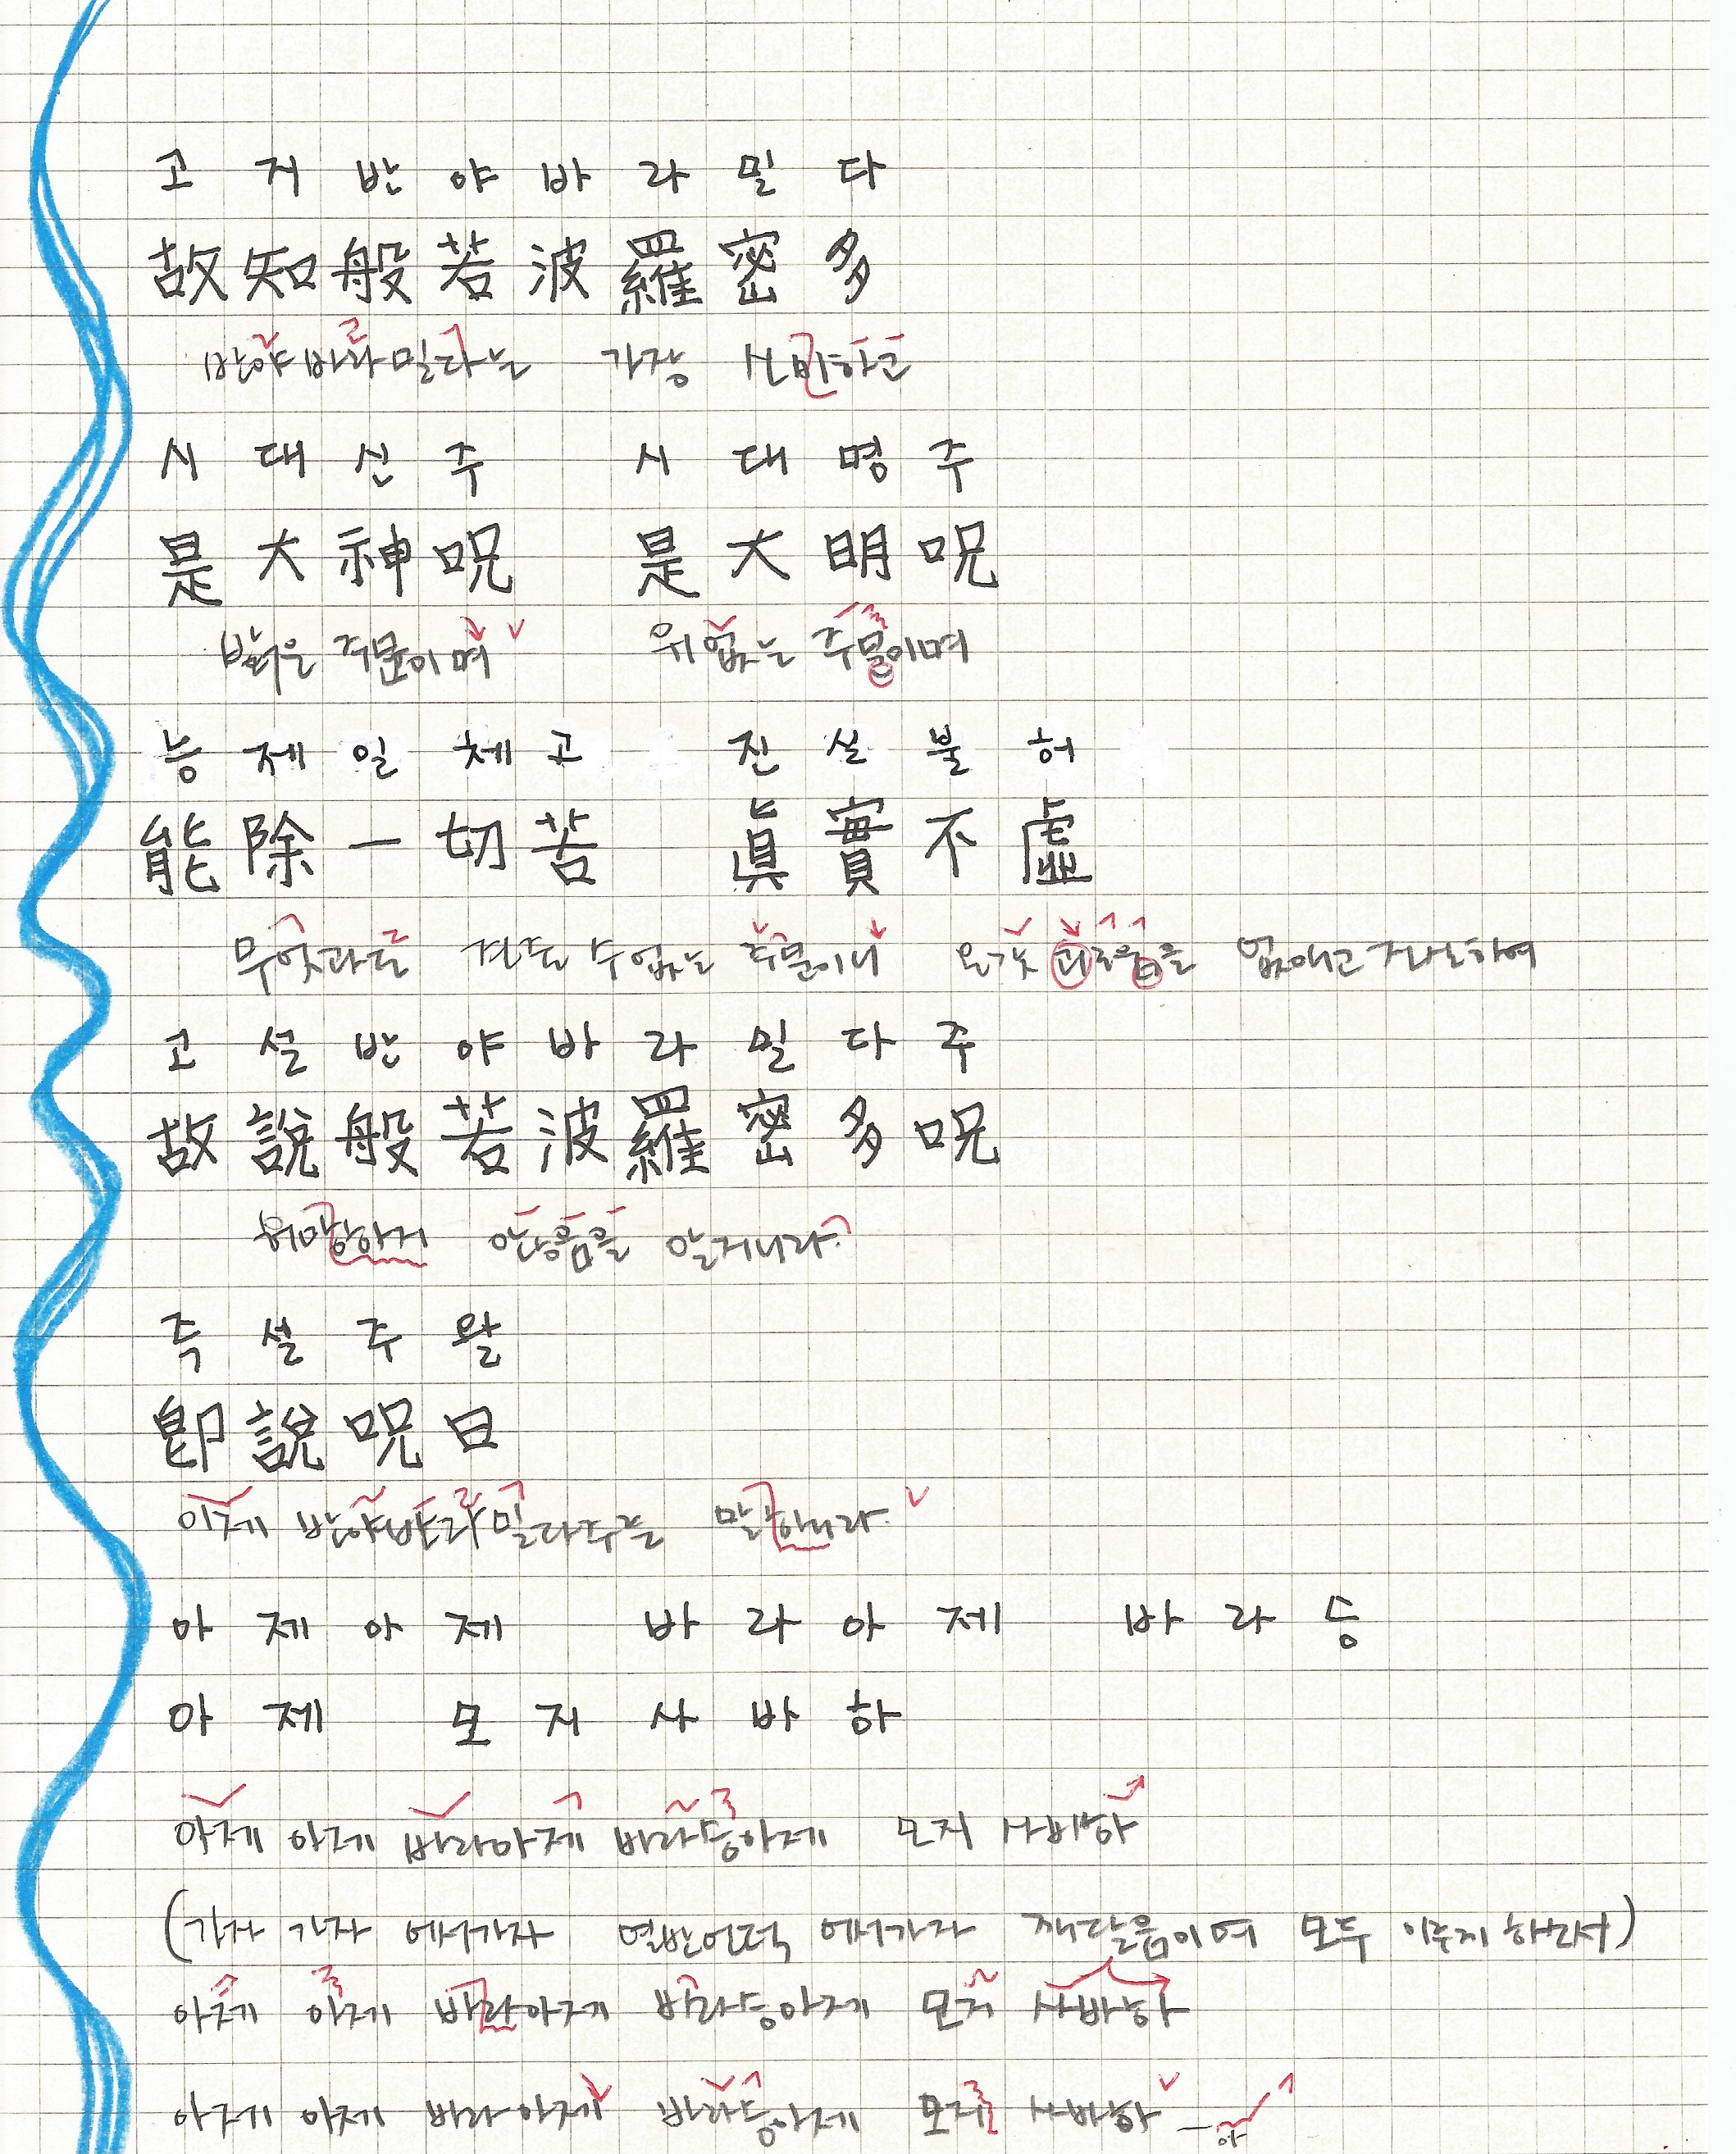 고 지 반 야 바 라 밀 다
故 知 般 若 波 羅 密 多
반야바라밀다는 가장 신비하고
시 대 신 주 시 대 명 주
是 大 神 呪 是 大 明 呪
밝은 주문이며 위없는 주문이며
능 제 일 체 고 진 실 불 허
能 除 一 切 苦 眞 實 不 虛
무엇과도 견줄 수 없는 주문이니 온갖 괴로움을 없애고 진실하여
고 설 반 야 바 라 밀 다 주
故 說 般 若 波 羅 密 多 呪
허망하지 않음을 알지니라.
즉 설 주 왈
卽 說 呪 曰
이제 반야바라밀다주를 말하니라.
아 제 아 제 바 라 아 제 바 라 승
아 제 모 지 사 바 하
아제 아제 바라아제 바라승아제 모지 사바하
(가자 가자 어서가자 열반언덕 어서가자 깨달음이여 모두 이루게 하소서)
아제 아제 바라아제 바라승아제 모지 사바하
아제 아제 바라아제 바라승아제 모지 사바하 — 아